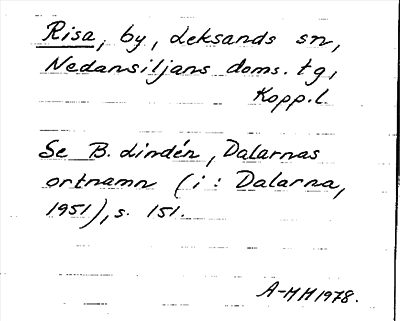 Risa, by, Leksands sn,
Nedansiljans doms. tg,
Kopp.l.
Se B. Lindén, Dalarnas
ortnamn (i: Dalarna,
1951), s. 151.
A-MH 1978.